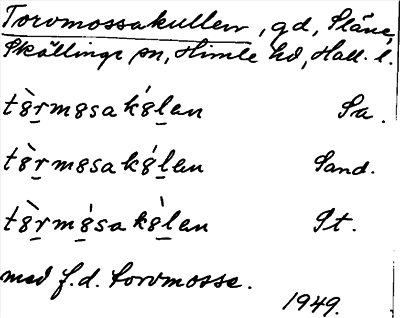 Torvmossakullen, gd, Släne,
Skällinge sn, Himle hd, Hall. l.
tȍrmosakȯlan Sa.
tȍrmosakȯlan Sand.
tȍrmȯsakȍlan St.
med f.d. torvmosse.
1949.